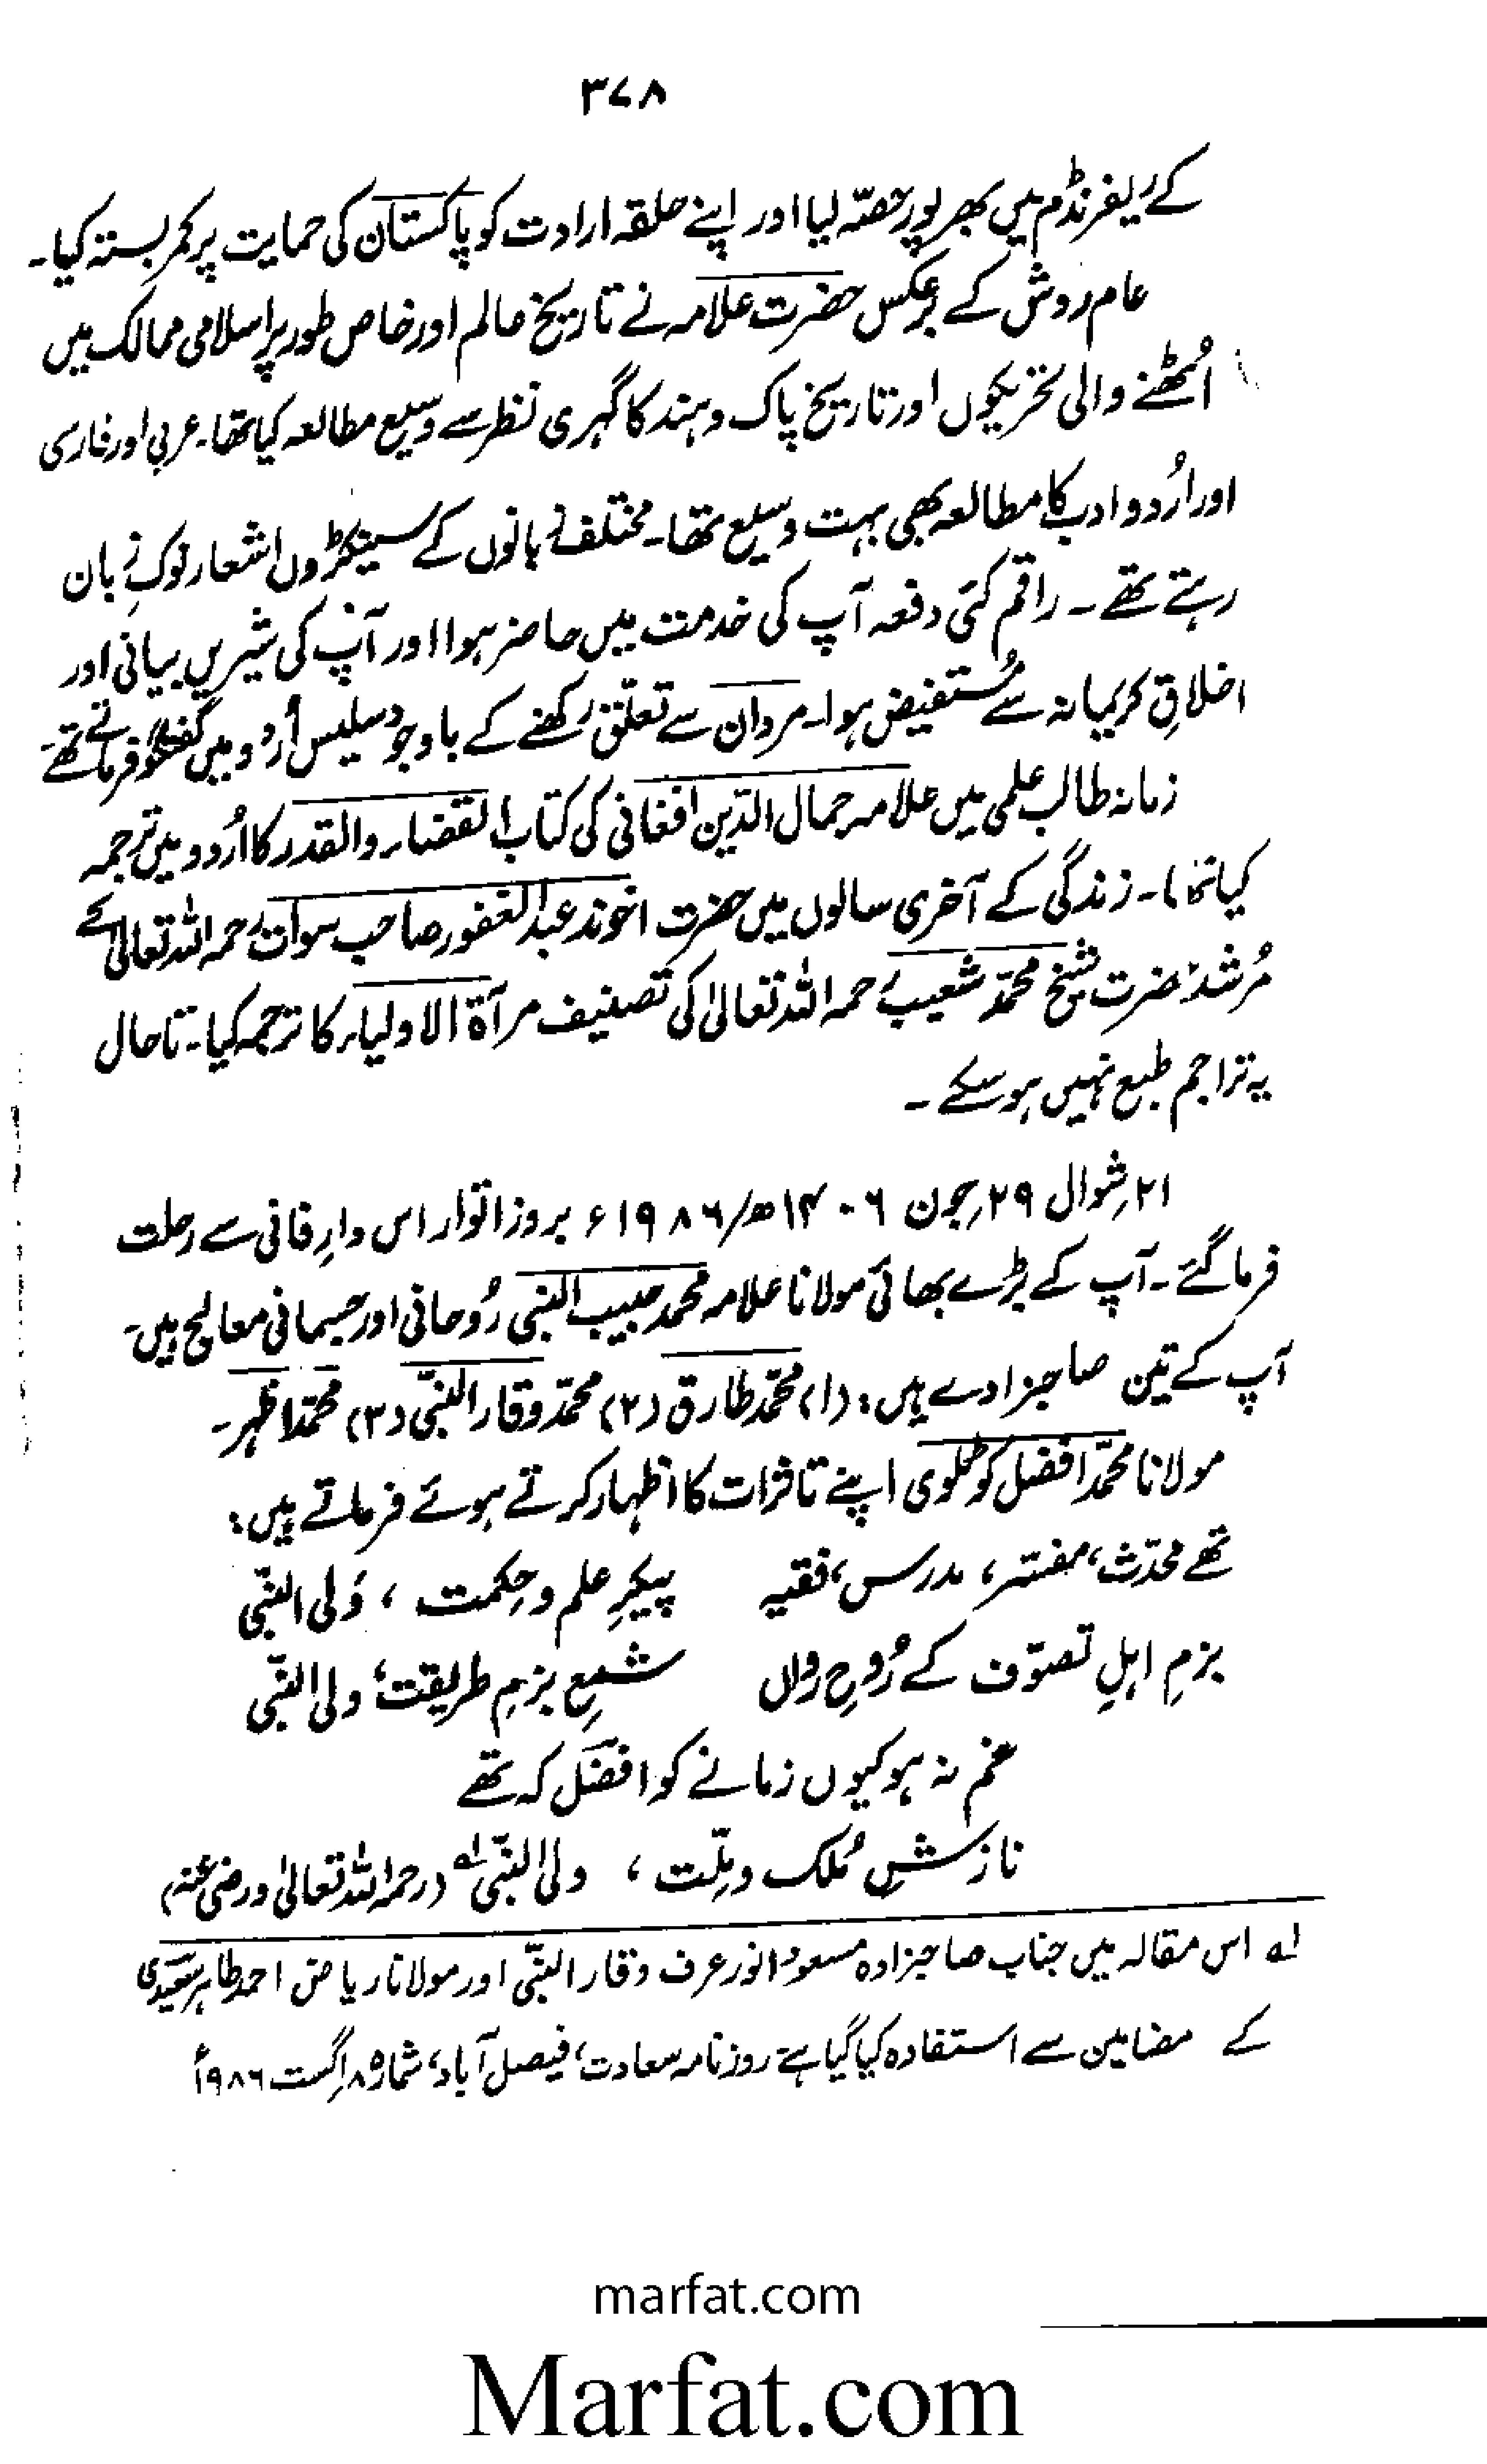 ۳۷۸
کے ریفرنڈم میں بھرپور حصّہ لیا اور اپنے حلقہ ارادت کو پاکستان کی حمایت پر کمر بستہ کیا۔
عام روش کے برعکس حضرت علامہ نے تاریخ عالم اور خاص طور پر اسلامی ممالک میں
اُٹھنے والی تحریکوں اور تاریخ پاک و ہند کا گہری نظر سے وسیع مطالعہ کیا تھا۔ عربی اور فارسی
اور اُردو ادب کا مطالعہ بھی بہت وسیع تھا۔ مختلف زبانوں کے سینکڑوں اشعار نوکِ زبان
رہتے تھے ۔ راقم کئی دفعہ آپ کی خدمت میں حاضر ہوا اور آپ کی شیریں بیانی اور
اخلاقِ کریمانہ سے مُستفیض ہوا۔ مردان سے تعلّق رکھنے کے باوجود سلیس اُردو میں گفتگو فرماتے تھے۔
زمانہ طالب علمی میں علامہ جمال الدّین افغانی کی کتاب القضاء والقدر کا اُردو میں ترجمہ
کیا تھا۔ زندگی کے آخری سالوں میں حضرت اخوند عبدالغفور صاحب سوات رحمہ اللہ تعالیٰ کے
مُرشد حضرت شیخ محمّد شعیب رحمہ اللہ تعالیٰ کی تصنیف مرآۃ الاولیاء کا ترجمہ کیا۔ تاحال
یہ تراجم طبع نہیں ہو سکے ۔
۲۱ شوال ۲۹ جون ۱۴۰۶ھ/۱۹۸۶ء بروز اتوار اس دارِ فانی سے رحلت
فرما گئے ۔ آپ کے بڑے بھائی مولانا علامہ محمد حبیب النبی رُوحانی اور جسمانی معالج ہیں۔
آپ کے تین صاحبزادے ہیں: (۱) محمّد طارق (۲) محمّد وقار النبّی (۳) محمّد اظہر۔
مولانا محمّد افضل کوٹلوی اپنے تاثرات کا اظہار کرتے ہوئے فرماتے ہیں:
تھے محدّث، مفسّر، مدرس، فقیہ پیکرِ علم و حِکمت ، وَلی النبّی
بزمِ اہلِ تصوّف کے رُوحِ رواں شمعِ بزمِ طریقت، ولی النبّی
غم نہ ہو کیوں زمانے کو افضل کہ تھے
نازشِ مُلک و مِلّت ، ولی النبّی لہ (رحمہ اللہ تعالیٰ ورضی عنہ)
لہ اس مقالہ میں جناب صاحبزادہ مسعود انور عرف وقار النبّی اور مولانا ریاض احمد طاہر سعیدی
کے مضامین سے استفادہ کیا گیا ہے روزنامہ سعادت، فیصل آباد، شمارہ ۸ اگست ۱۹۸۶ء
marfat.com
Marfat.com